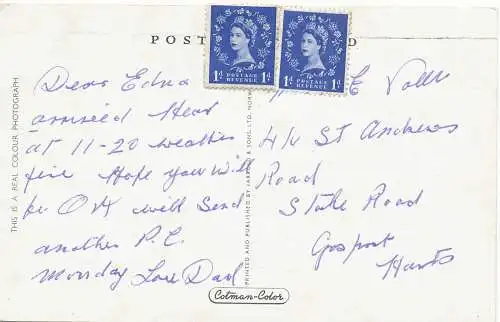 POST
D
THIS IS A REAL COLOUR PHOTOGRAPH
Dear Edna
arrived Hear
at 11-20 weather
fine Hope you will
be OK will Send
another P.C.
Monday Love Dad
POSTAGE
REVENUE
1d 1d
POSTAGE
REVENUE
1d 1d
PRINTED AND PUBLISHED BY JARROLD & SONS, LTD., NORW
44 St Andrews
Road
Stoke Road
Gosport
Hants
Cotman-Color